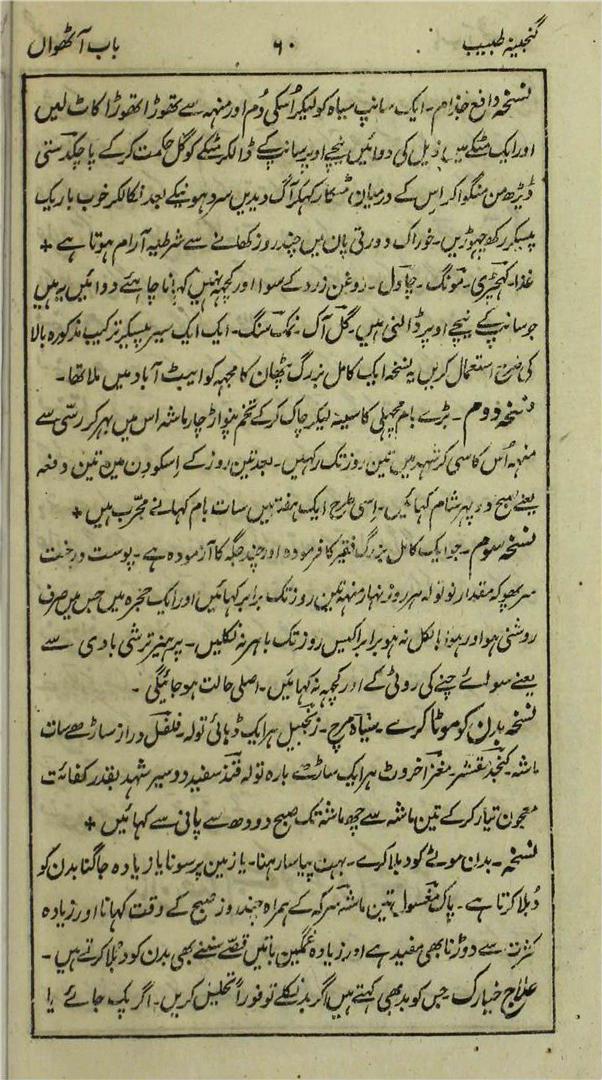 گنجینۂ طبیب
۶۰
باب آٹھواں
نسخہ دافع جذام۔ ایک سانپ سیاہ کو لیکر اُسکی دُم اور منہہ سے تھوڑا تھوڑا کاٹ لیں
اور ایک مٹکے میں ذیل کی دوائیں نیچے اوپر سانپ کے ڈالکر مٹکے کو گل حکمت کر کے پاچکدستی
ڈیڑھ من منگوا کر اس کے درمیان مٹکا رکہکر آگ دیدیں سرد ہونیکے بعد نکالکر خوب باریک
پیسکر رکھ چہوڑیں۔ خوراک دو رتی پان میں چند روز کھانے سے شرطیہ آرام ہوتا ہے +
غذا۔ کہچڑی۔ مونگ۔ چاول۔ روغن زرد کے سوا اور کچہہ نہیں کہانا چاہئے دوائیں یہ ہیں
جو سانپ کے نیچے اوپر ڈالنی ہیں۔ گل آک۔ نمک سنگ۔ ایک ایک سیر پیسکر ترکیب مذکورہ بالا
کی طرح استعمال کریں یہ نسخہ ایک کامل بزرگ پٹھان کا مجہہ کو ایبٹ آباد میں ملا تھا۔
نسخہ دوم۔ بڑے بام مچہلی کا سینہ لیکر چاک کر کے تخم پنواڑ چار ماشہ اس میں بہر کر رسّی سے
منہہ اُس کا سی کر شہد میں تین روز تک رکہیں۔ بعد تین روز کے اسکو دن میں تین دفعہ
یعنے صبح دوپہر شام کہائیں۔ اِسی طرح ایک ہفتہ میں سات بام کہانے مجّرب ہیں +
نسخہ سوم۔ جو ایک کامل بزرگ فقیر کا فرمودہ اور چند جگہ کا آزمودہ ہے۔ پوست درخت
سربھوکہ مقدار نو تولہ ہر روز نہار منہہ تین روز تک برابر کہائیں اور ایک حجرہ میں جس میں صرف
روشنی ہو اور ہوا بالکل نہ ہو برابر اکیس روز تک باہر نہ نکلیں۔ پرہیز ترشی بادی سے
یعنے سوائے چنے کی روٹی کے اور کچہہ نہ کہائیں۔ اصلی حالت ہو جائیگی۔
نسخہ بدن کو موٹا کرے۔ سیاہ مرچ۔ زنجبیل ہر ایک ڈہائی تولہ۔ فلفل دراز ساڑھے سات
ماشہ۔ کنجد مقشر۔ مغز اخروٹ ہر ایک ساڑے بارہ تولہ قند سفید دو سیر شہد بقدر کفائت
معجون تیار کر کے تین ماشہ سے چھ ماشہ تک صبح دودھ سے پانی سے کہائیں +
نسخہ۔ بدن موٹے کو دبلا کرے۔ بہت پیاسا رہنا۔ یا زمین پر سونا یا زیادہ جاگنا بدن کو
دُبلا کرتا ہے۔ پاک مغسول تین ماشہ سرکہ کے ہمراہ چند روز صبح کے وقت کہانا اور زیادہ
کثرت سے دوڑنا بھی مفید ہے اور زیادہ غمگین باتیں قصّے سننے بھی بدن کو دُبلا کرتے ہیں۔
علاج خیارک جس کو بد بھی کہتے ہیں اگر بد نکلے تو فوراً تحلیل کریں۔ اگر پک جائے یا